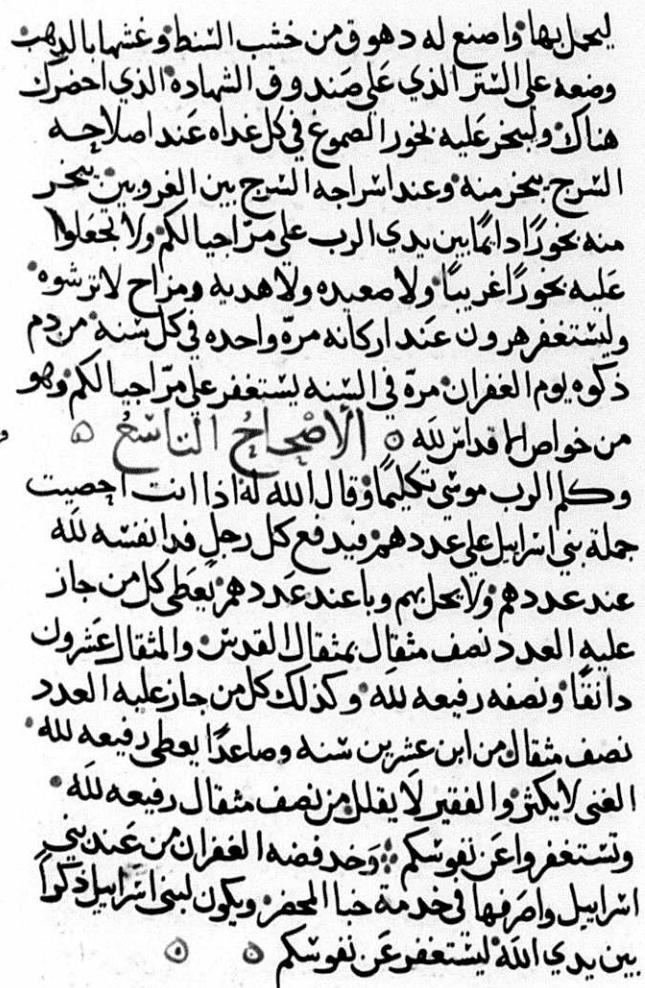 ليحمل بها واصنع له دهوق من خشب السنط وغشها بالدهب
وضعه على الستر الذي على صندوق الشهادة الذي احضرك
هناك وليبخر عليه بخور الصموغ في كل غداه عند اصلاحه
السرج يبخر منه وعند اسراجه السرج بين الغروبين يبخر
منه بخورًا دايمًا بين يدي الرب على مرّ اجيالكم ولا تجعلوا
عليه بخورًا غريبًا ولا صعيده ولا هديه ومزاج لا ترشوه
وليستغفر هرون عند اركانه مرّه واحده في كل سنه من دم
ذكوه يوم الغفران مرة في السنه يستغفر على مرّ اجيالكم وهو
من خواص الاقداس لله الأصْحاحُ التاسعُ
وكلم الرب موسى تكليمًا وقال الله له اذا انت احصيت
جملة بني اسراييل على عددهم فيدفع كل رجلٍ فدا نفسه لله
عند عددهم ولا يحل بهم وبا عند عددهم يعطى كل من جاز
عليه العدد نصف مثقال بمثقال القدس والمثقال عشرون
دانقًا ونصفه رفيعه لله وكذلك كل من جاز عليه العدد
نصف مثقال من ابن عشرين سنه وصاعدًا يعطى رفيعه لله
الغنى لا يكثر والفقير لا يقلل من نصف مثقال رفيعه لله
وتستغفروا عن نفوسكم وخد فضه الغفران من عند بني
اسراييل واصرفها في خدمة خبا المحضر ويكون لبني اسراييل ذكراً
بين يدي الله ليستغفر عن نفوسكم